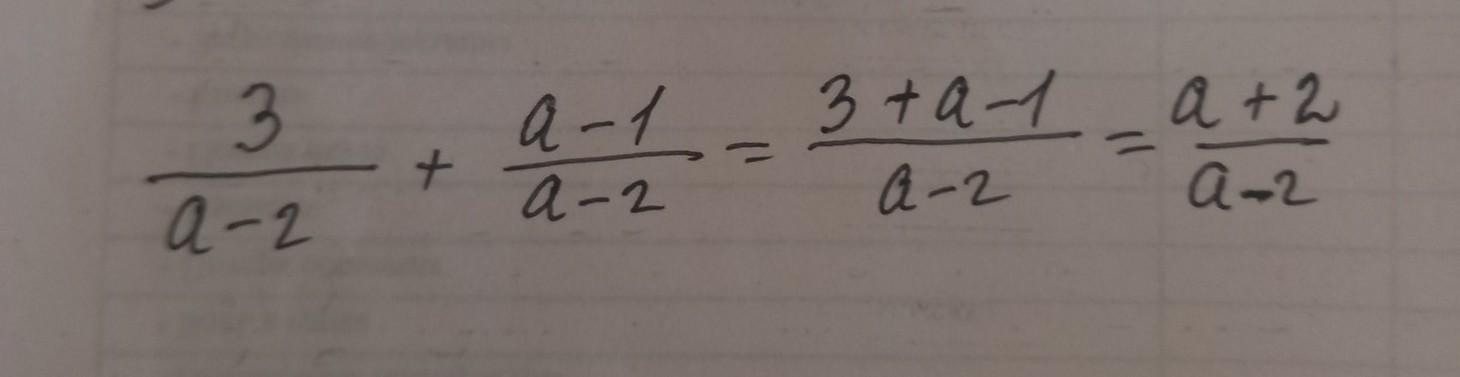 \frac{3}{a-2} + \frac{a-1}{a-2} = \frac{3+a-1}{a-2} = \frac{a+2}{a-2}